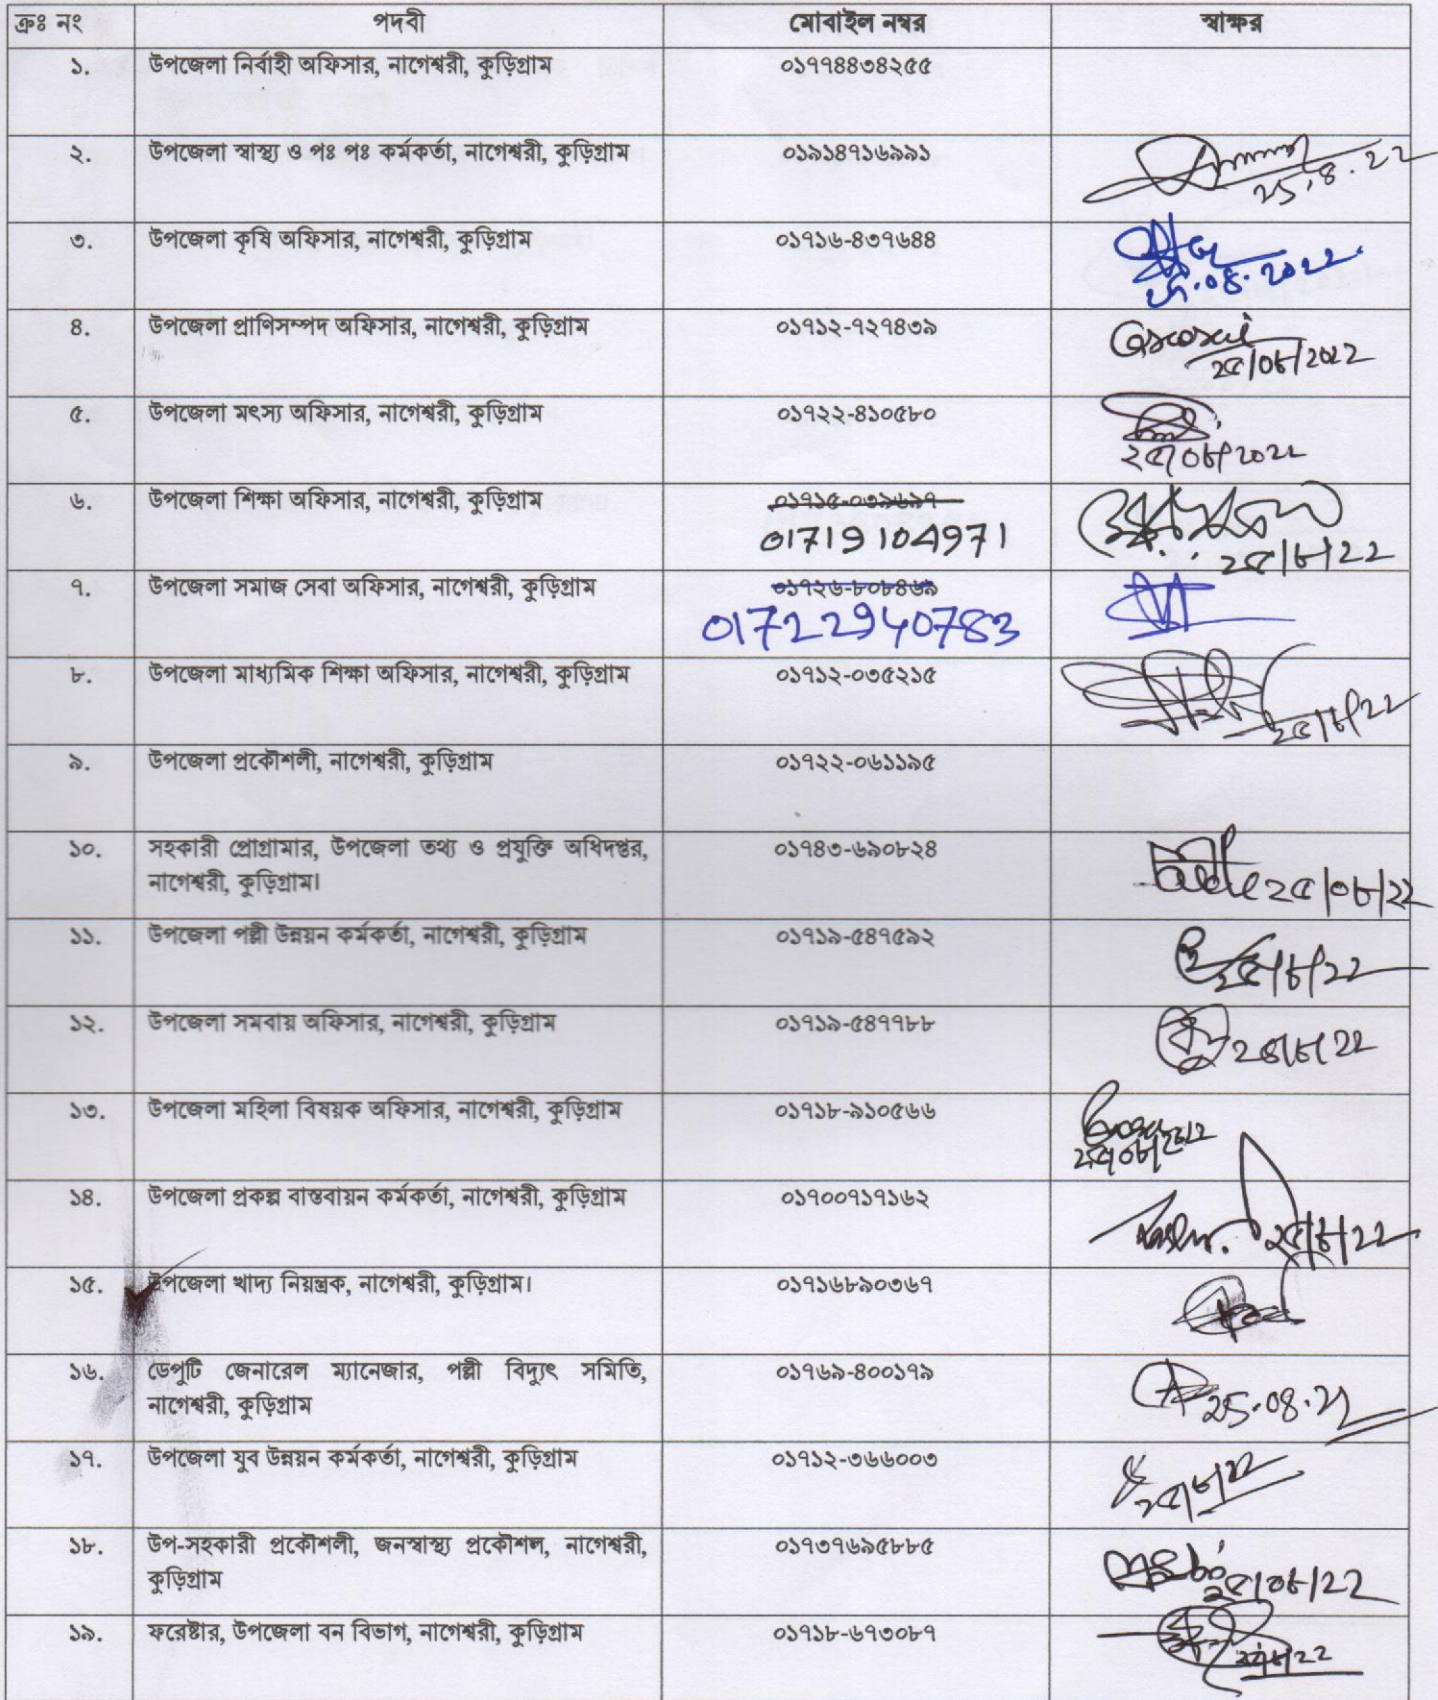 ক্রঃ নং পদবী মোবাইল নম্বর স্বাক্ষর
১. উপজেলা নির্বাহী অফিসার, নাগেশ্বরী, কুড়িগ্রাম ০১৭৭৪৪৩৪২৫৫
২. উপজেলা স্বাস্থ্য ও পঃ পঃ কর্মকর্তা, নাগেশ্বরী, কুড়িগ্রাম ০১৯১৪৭১৬৯৯১
25.8.22
৩. উপজেলা কৃষি অফিসার, নাগেশ্বরী, কুড়িগ্রাম ০১৭১৬-৪৩৭৬৪৪
৪. উপজেলা প্রাণিসম্পদ অফিসার, নাগেশ্বরী, কুড়িগ্রাম ০১৭১২-৭২৭৪৩৯
২৫/০৮/২০২২
৫. উপজেলা মৎস্য অফিসার, নাগেশ্বরী, কুড়িগ্রাম ০১৭২২-৪১০৫৮০
২৫/০৮/২০২২
৬. উপজেলা শিক্ষা অফিসার, নাগেশ্বরী, কুড়িগ্রাম ০১৭১৫-০৩৯৬৯৭
01719104971
২৫/৮/২২
৭. উপজেলা সমাজ সেবা অফিসার, নাগেশ্বরী, কুড়িগ্রাম ০১৭২৬-৮০৮৪৬৯
01722940783
৮. উপজেলা মাধ্যমিক শিক্ষা অফিসার, নাগেশ্বরী, কুড়িগ্রাম ০১৭১২-০৩৫২১৫
২৫/৮/২২
৯. উপজেলা প্রকৌশলী, নাগেশ্বরী, কুড়িগ্রাম ০১৭২২-০৬১১৯৫
১০. সহকারী প্রোগ্রামার, উপজেলা তথ্য ও প্রযুক্তি অধিদপ্তর, ০১৭৪৩-৬৯০৮২৪
নাগেশ্বরী, কুড়িগ্রাম। ২৫/০৮/২২
১১. উপজেলা পল্লী উন্নয়ন কর্মকর্তা, নাগেশ্বরী, কুড়িগ্রাম ০১৭১৯-৫৪৭৫৯২
২৫/৮/২২
১২. উপজেলা সমবায় অফিসার, নাগেশ্বরী, কুড়িগ্রাম ০১৭১৯-৫৪৭৭৮৮
২৫/৮/২২
১৩. উপজেলা মহিলা বিষয়ক অফিসার, নাগেশ্বরী, কুড়িগ্রাম ০১৭১৮-৯১০৫৬৬
১৪. উপজেলা প্রকল্প বাস্তবায়ন কর্মকর্তা, নাগেশ্বরী, কুড়িগ্রাম ০১৭০০৭১৭১৬২
২৫/৮/২২
১৫. উপজেলা খাদ্য নিয়ন্ত্রক, নাগেশ্বরী, কুড়িগ্রাম। ০১৭১৬৮৯০৩৬৭
১৬. ডেপুটি জেনারেল ম্যানেজার, পল্লী বিদ্যুৎ সমিতি, ০১৭৬৯-৪০০১৭৯
নাগেশ্বরী, কুড়িগ্রাম
১৭. উপজেলা যুব উন্নয়ন কর্মকর্তা, নাগেশ্বরী, কুড়িগ্রাম ০১৭১২-৩৬৬০০৩
২৫/৮/২২
১৮. উপ-সহকারী প্রকৌশলী, জনস্বাস্থ্য প্রকৌশল, নাগেশ্বরী, ০১৭৩৭৬৯৫৮৮৫
কুড়িগ্রাম ২৫/০৮/২২
১৯. ফরেষ্টার, উপজেলা বন বিভাগ, নাগেশ্বরী, কুড়িগ্রাম ০১৭১৮-৬৭৩০৮৭